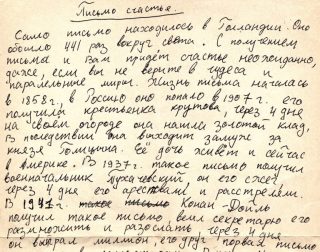 Письмо счастья.
Само письмо находилось в Голландии. Оно
обошло 441 раз вокруг света. С получением
письма и Вам придёт счастье неожиданно,
даже, если вы не верите в чудеса и
параллельные миры. Жизнь письма началась
в 1858 г., в Россию оно попало в 1907 г. его
получила крестьянка Крутова, через 4 дня
на своём огороде она нашла золотой клад.
В последствии она выходит замуже за
князя Голицина. Её дочь живёт и сейчас
в Америке. В 1937 г. такое письмо получил
военачальник Тухачевский он его сжёг
через 4 дня его арестовали и расстреляли.
В 1947 г. такое письмо Конан-Дойль
получил такое письмо, велел секретарю его
размножить и разослать через 4 дня
он выиграл миллион, его друг порвал письмо